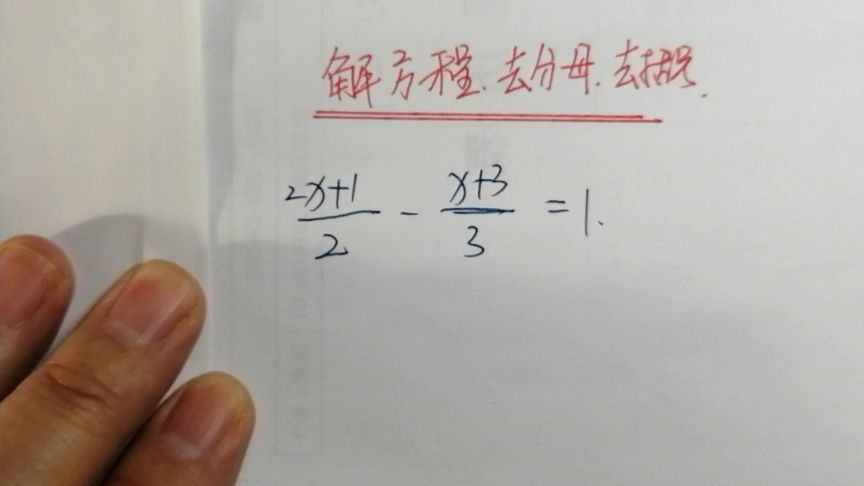 解方程.去分母.去括号.
2x+1/2 - x+3/3 =1.